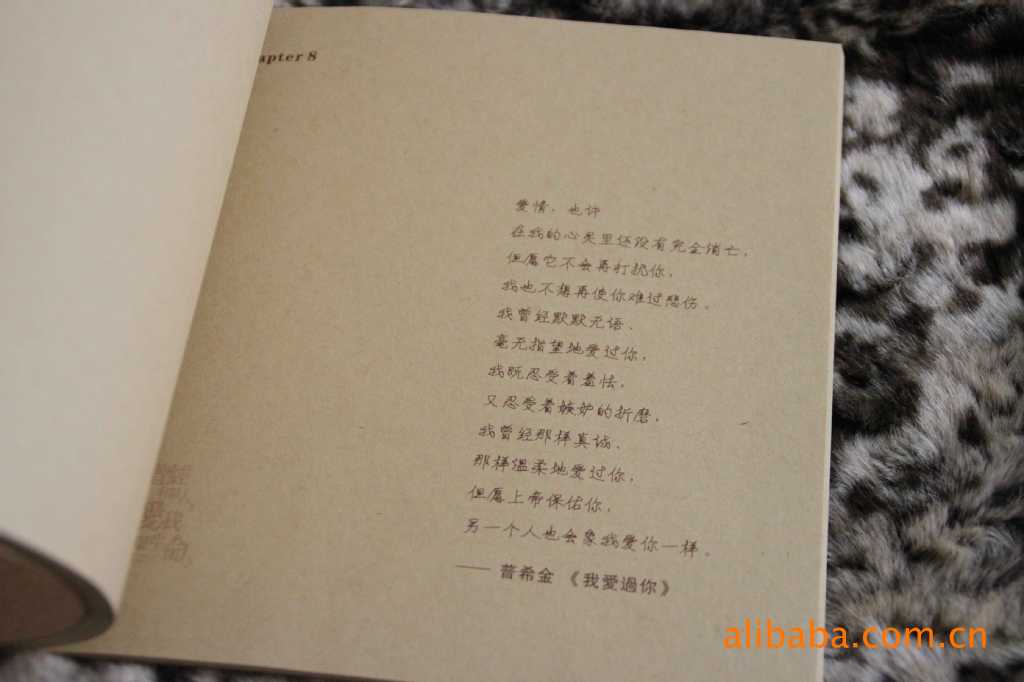 apter 8
爱情，也许
在我的心灵里还没有完全消亡，
但愿它不会再打扰你，
我也不想再使你难过悲伤。
我曾经默默无语、
毫无指望地爱过你，
我既忍受着羞怯，
又忍受着嫉妒的折磨，
我曾经那样真诚、
那样温柔地爱过你，
但愿上帝保佑你，
另一个人也会象我爱你一样。
—— 普希金 《我愛過你》
alibaba.com.cn